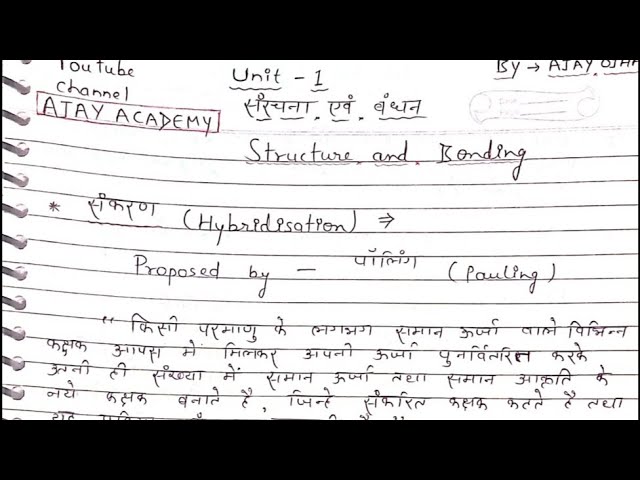 Youtube
Channel
AJAY ACADEMY
Unit - 1
By → AJAY OJHA
संरचना एवं बंधन
Structure and Bonding
* संकरण (Hybridisation) ⇒
Proposed by - पॉलिंग (Pauling)
" किसी परमाणु के लगभग समान ऊर्जा वाले विभिन्न
कक्षक आपस में मिलकर अपनी ऊर्जा पुनर्वितरित करके
उतनी ही संख्या में समान ऊर्जा तथा समान आकृति के
नये कक्षक बनाते है, जिन्हे संकरित कक्षक कहते है तथा